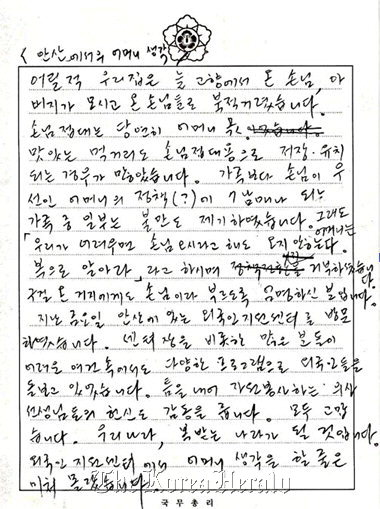 < 안산에서의 어머니 생각 >
어릴적 우리집은 늘 고향에서 온 손님, 아
버지가 모시고 온 손님들로 북적거렸습니다.
손님접대는 당연히 어머니 몫.
맛있는 먹거리도 손님접대용으로 저장·유치
되는 경우가 많았습니다. 가족보다 손님이 우
선인 어머니의 정책(?)에 7남매나 되는
가족 중 일부는 불만도 제기하였습니다. 그래도 어머니는
「우리가 어려우면 손님 오시라고 해도 오지 안는다.
복으로 알아라」라고 하시며 거부하셨습니다.
구걸 온 거지에게도 손님이라 부르도록 엄명하신 분입니다.
지난 금요일 안산에 있는 외국인지원센터를 방문
하였습니다. 센터장을 비롯한 많은 분들이
어려운 여건 속에서도 다양한 프로그램으로 외국인들을
돌보고 있었습니다. 틈을 내어 자원봉사하는 의사
선생님들의 헌신도 감동을 줍니다. 모두 고맙
습니다. 우리나라, 복받는 나라가 될 것입니다.
외국인 지원센터에서 어머니 생각을 할 줄은
미처 몰랐습니다.
The Korea Herald
국무총리